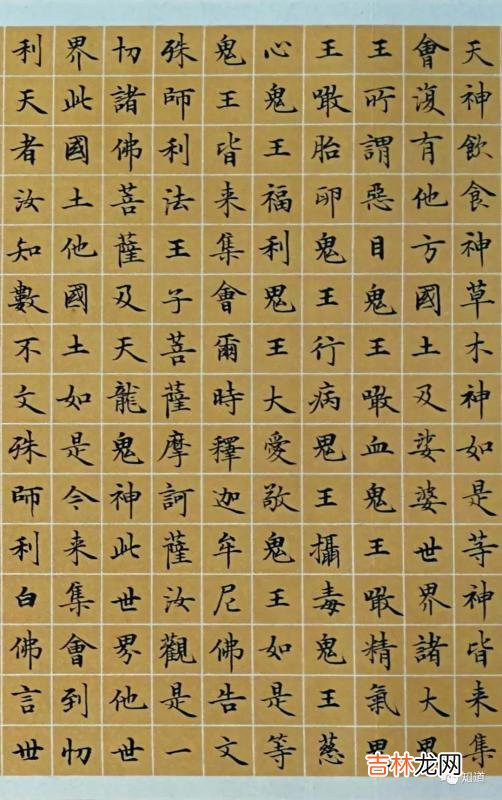 天神飲食神草木神如是等神皆来集
會復有他方國土及娑婆世界諸大鬼
王所謂惡目鬼王噉血鬼王噉精氣鬼
王噉胎卵鬼王行病鬼王攝毒鬼王慈
心鬼王福利鬼王大愛敬鬼王如是等
鬼王皆来集會爾時釋迦牟尼佛告文
殊師利法王子菩薩摩訶薩汝觀是一
切諸佛菩薩及天龍鬼神此世界他世
界此國土他國土如是今来集會到忉
利天者汝知數不文殊師利白佛言世
知道
吉林龙网